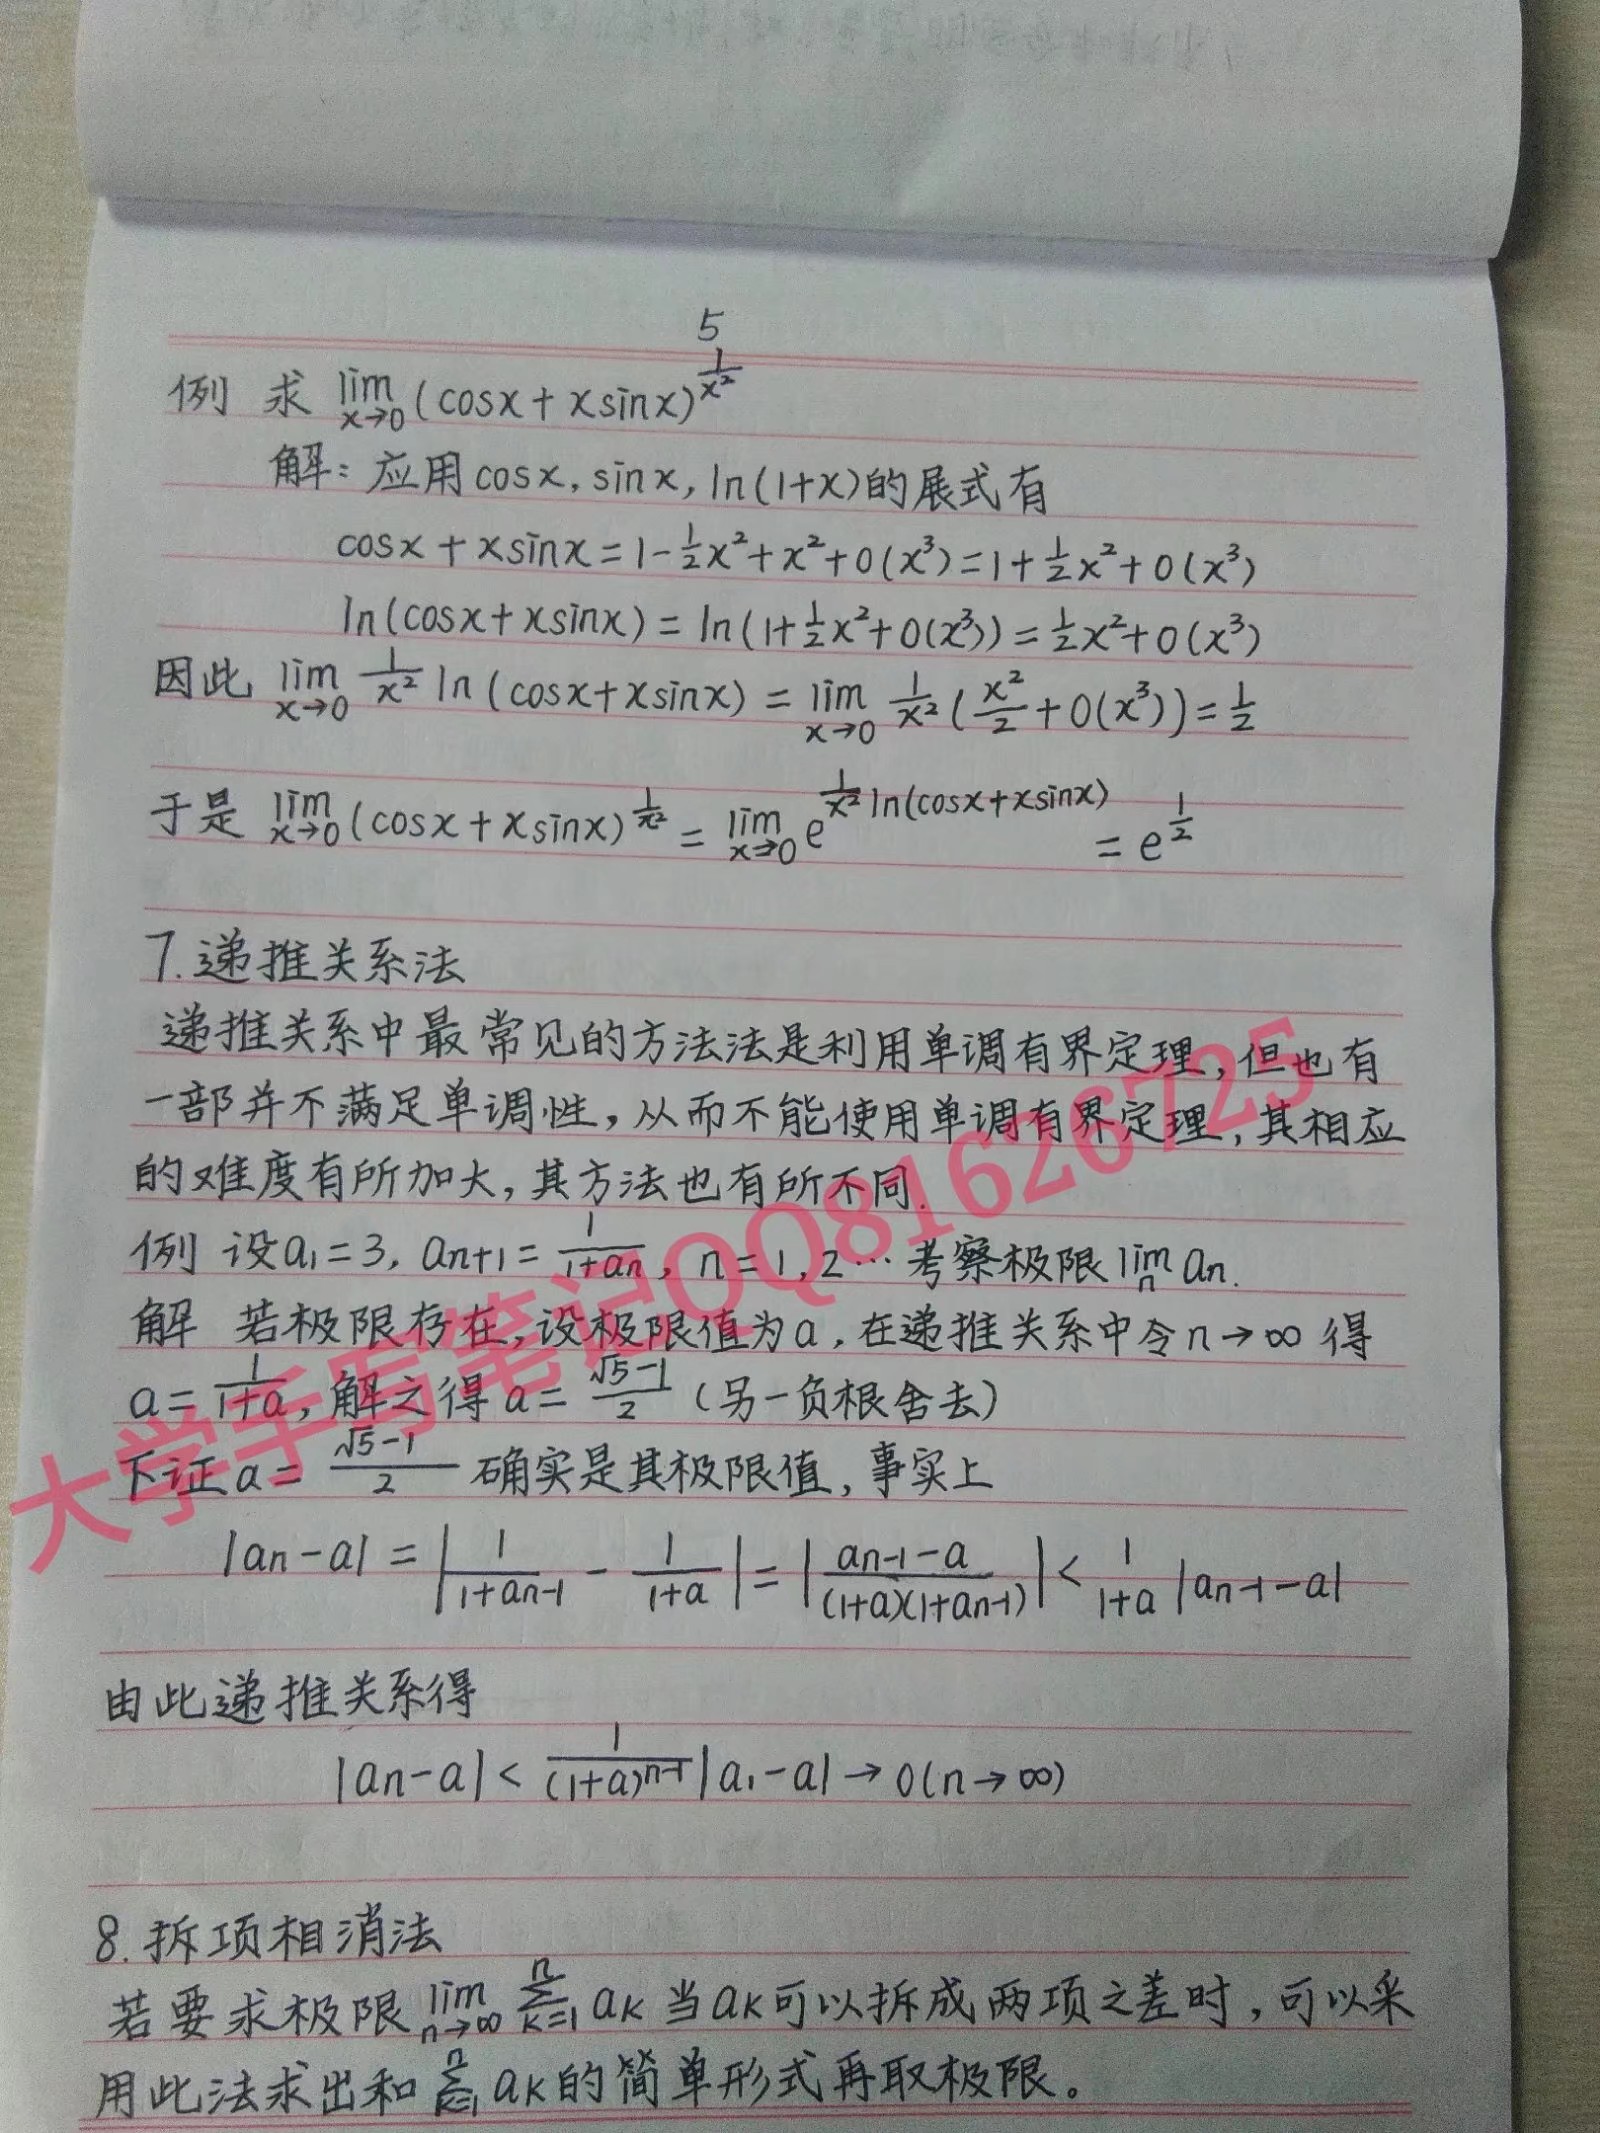 5
例 求 lim x→0 (cosx+xsinx)^(1/x²)
解：应用cosx, sinx, ln(1+x)的展式有
cosx+xsinx=1-½x²+x²+o(x³)=1+½x²+o(x³)
ln(cosx+xsinx)=ln(1+½x²+o(x³))=½x²+o(x³)
因此 lim x→0 1/x² ln(cosx+xsinx)= lim x→0 1/x²(x²/2+o(x³))=½
于是 lim x→0 (cosx+xsinx)^(1/x²) = lim x→0 e^(1/x² ln(cosx+xsinx)) = e^(1/2)
7.递推关系法
递推关系中最常见的方法法是利用单调有界定理，但也有
一部并不满足单调性，从而不能使用单调有界定理，其相应
的难度有所加大，其方法也有所不同.
例 设a₁=3, an+1=1/(1+an), n=1,2…考察极限lim n an.
解 若极限存在，设极限值为a，在递推关系中令n→∞得
a=1/(1+a)，解之得a=(√5-1)/2（另一负根舍去）
下证a=(√5-1)/2 确实是其极限值，事实上
|an-a|=|1/(1+an-1) - 1/(1+a)|=|(an-1-a)/((1+a)(1+an-1))|<1/(1+a)|an-1-a|
由此递推关系得
|an-a|<1/(1+a)^(n-1)|a₁-a|→0(n→∞)
8.拆项相消法
若要求极限lim n→∞ ∑ k=1 n aK当aK可以拆成两项之差时，可以采
用此法求出和∑ k=1 n aK的简单形式再取极限。
大学手写笔记QQ81626725